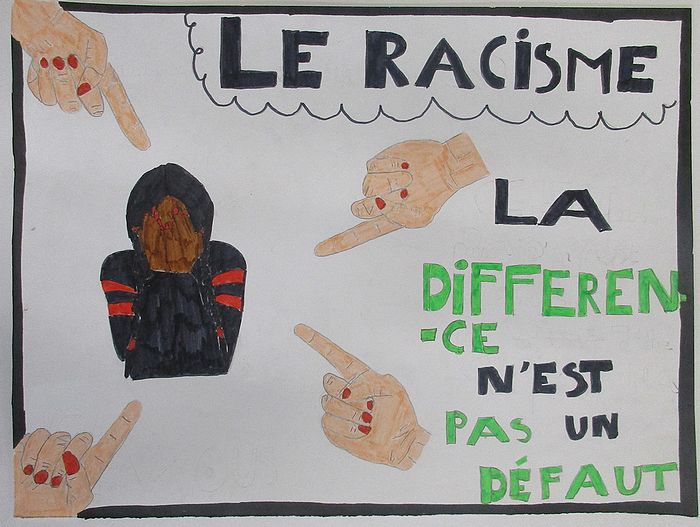 LE RACISME
LA
DIFFEREN
-CE
N'EST
PAS UN
DÉFAUT